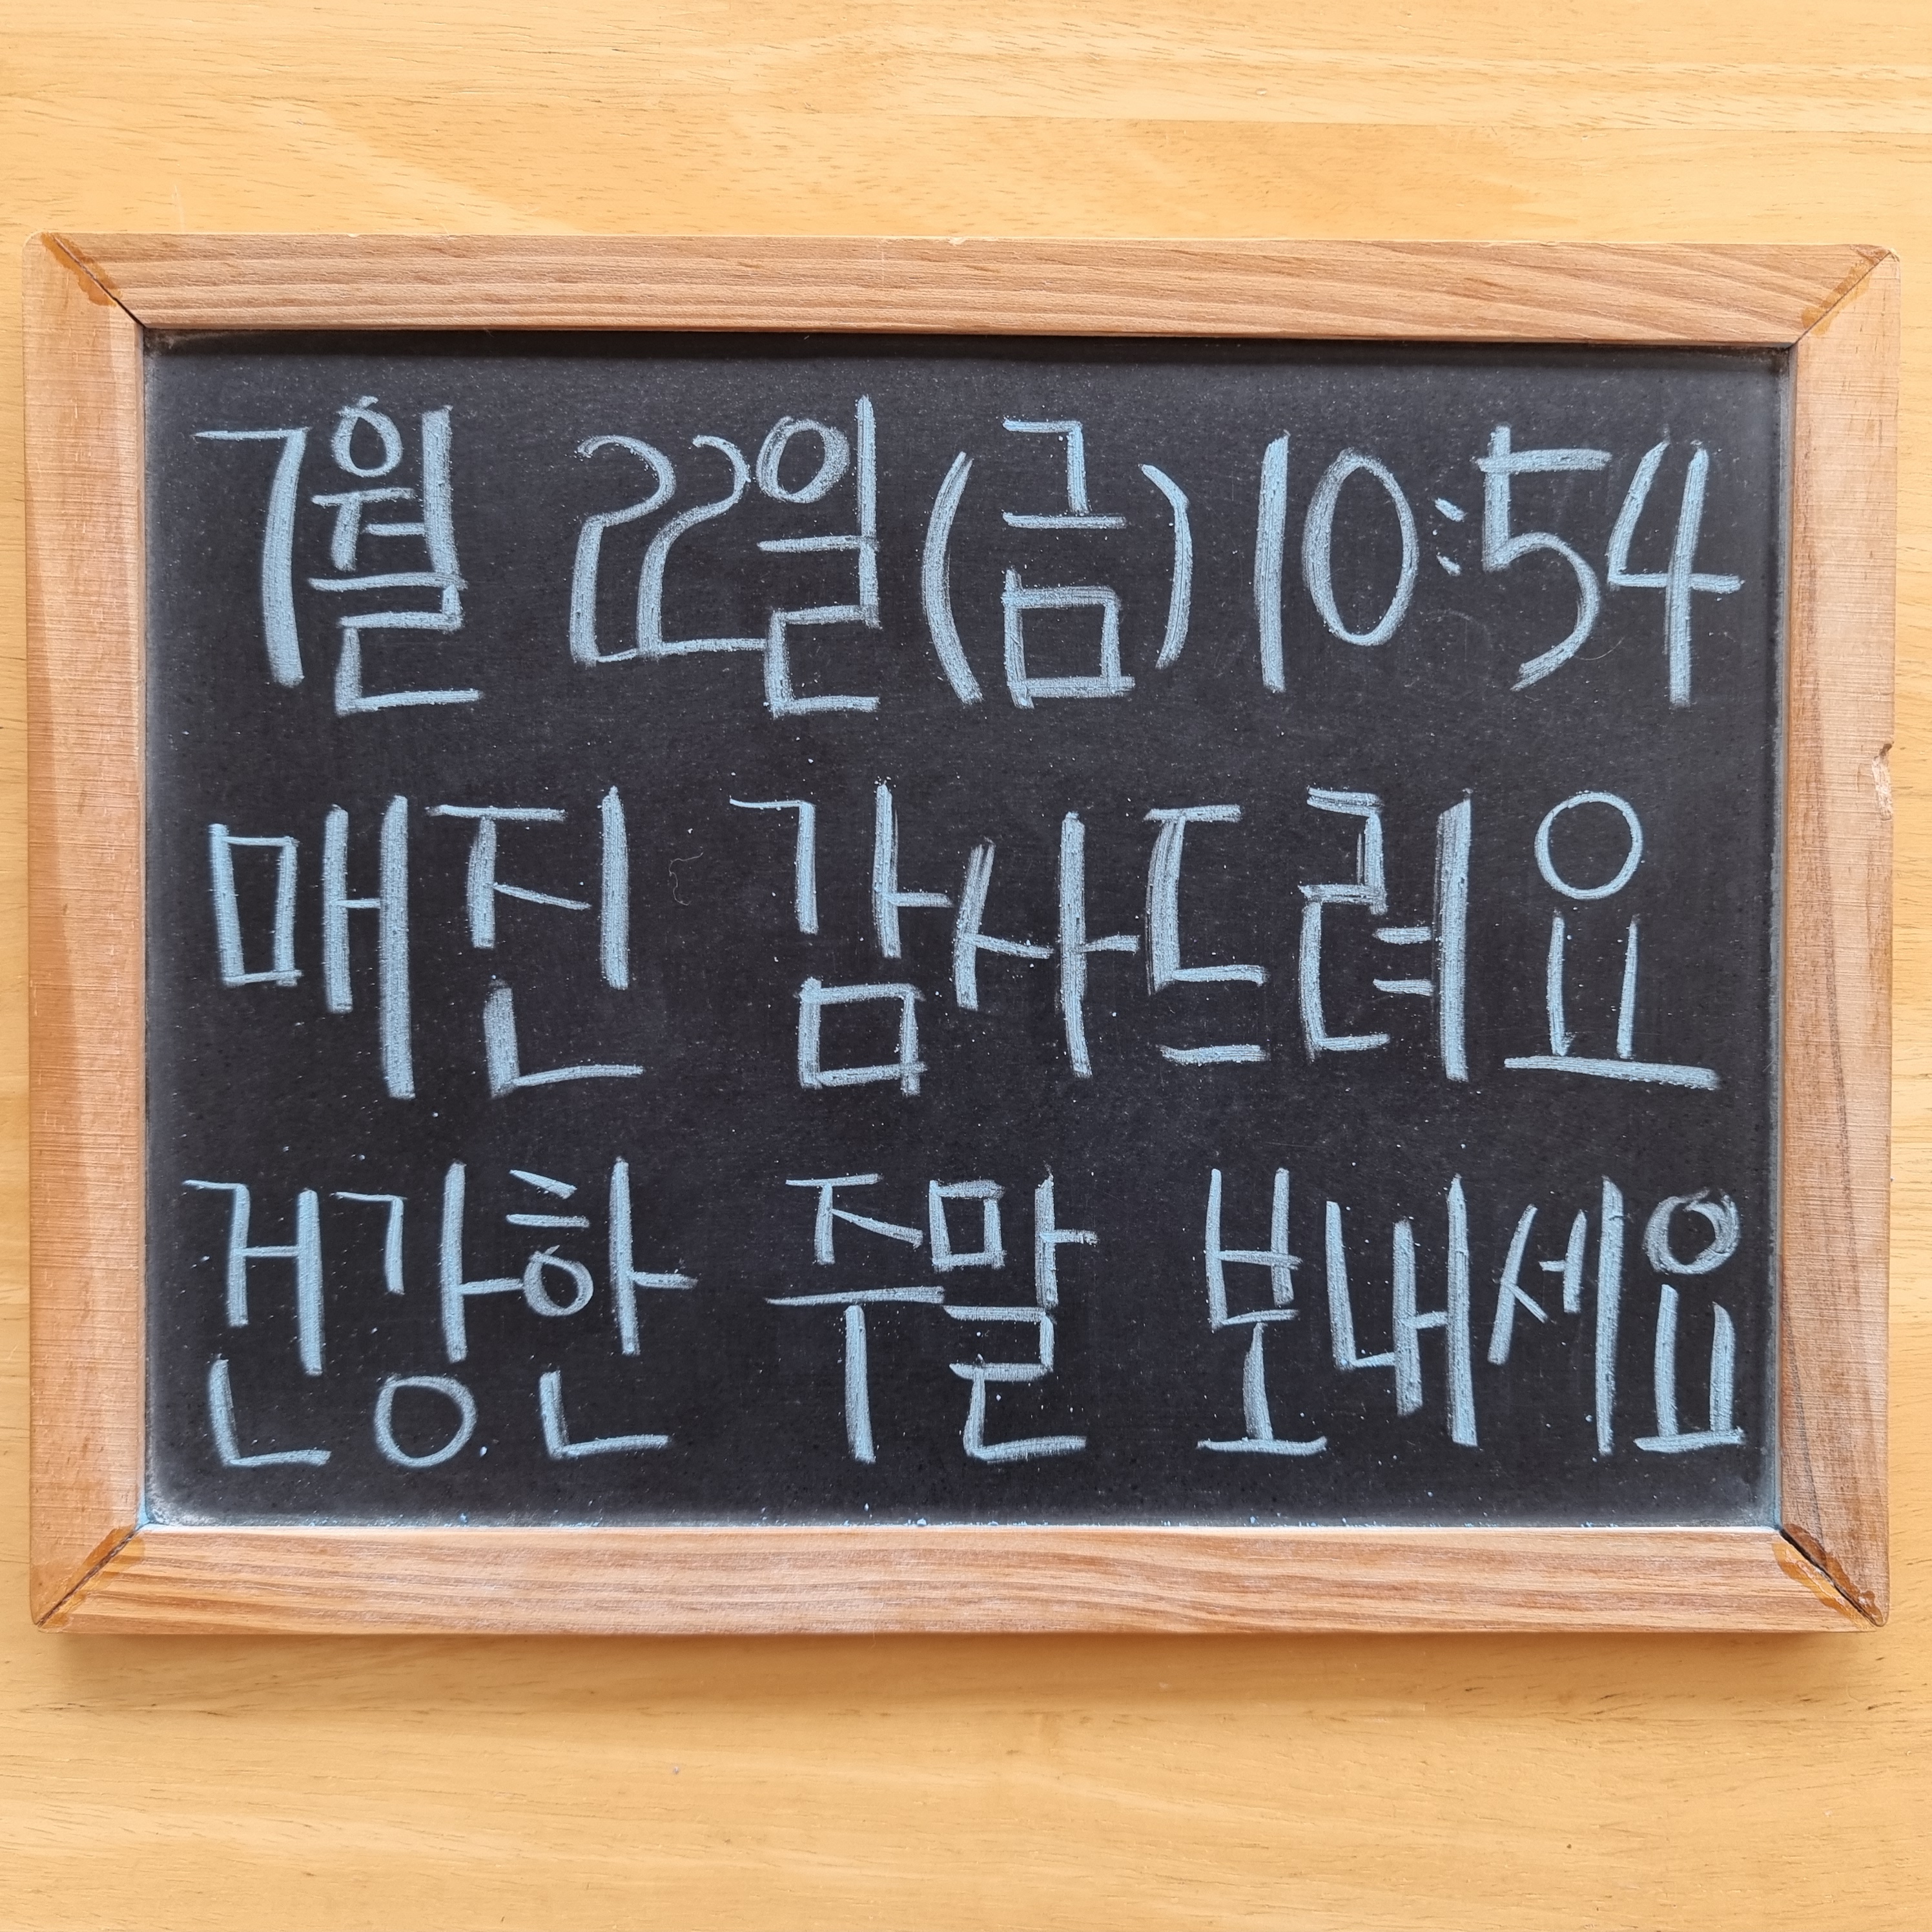 7월 22일(금) 10:54
매진 감사드려요
건강한 주말 보내세요